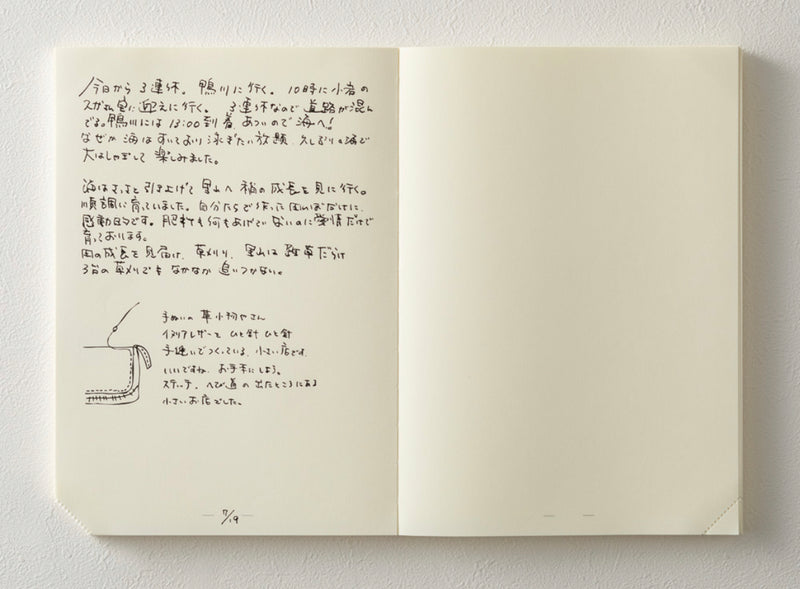 今日から 3連休。鴨川に行く。10時に小岩の
スガさん宅に迎えに行く。3連休なので道路が混ん
でる。鴨川には 13:00到着、あついので海へ!
なぜか海はすいており泳ぎたい放題、久しぶりの海で
大はしゃぎして 楽しみました。
海はさっさと引き上げて 里山へ 稲の成長を見に行く。
順調に育っていました。自分たちで作った田んぼだけに、
感動的です。肥料も何もあげていないのに愛情だけで
育っております。
田の成長を見届け、草刈り、里山は雑草だらけ
3台の草刈りでもなかなか追いつかない。
手ぬいの 革小物やさん
イタリアレザーを ひと針ひと針
手縫いでつくっている、小さい店です。
いいですね、お手本にしよう。
ステッチ、へび道の出たところにある
小さいお店でした。
7/19